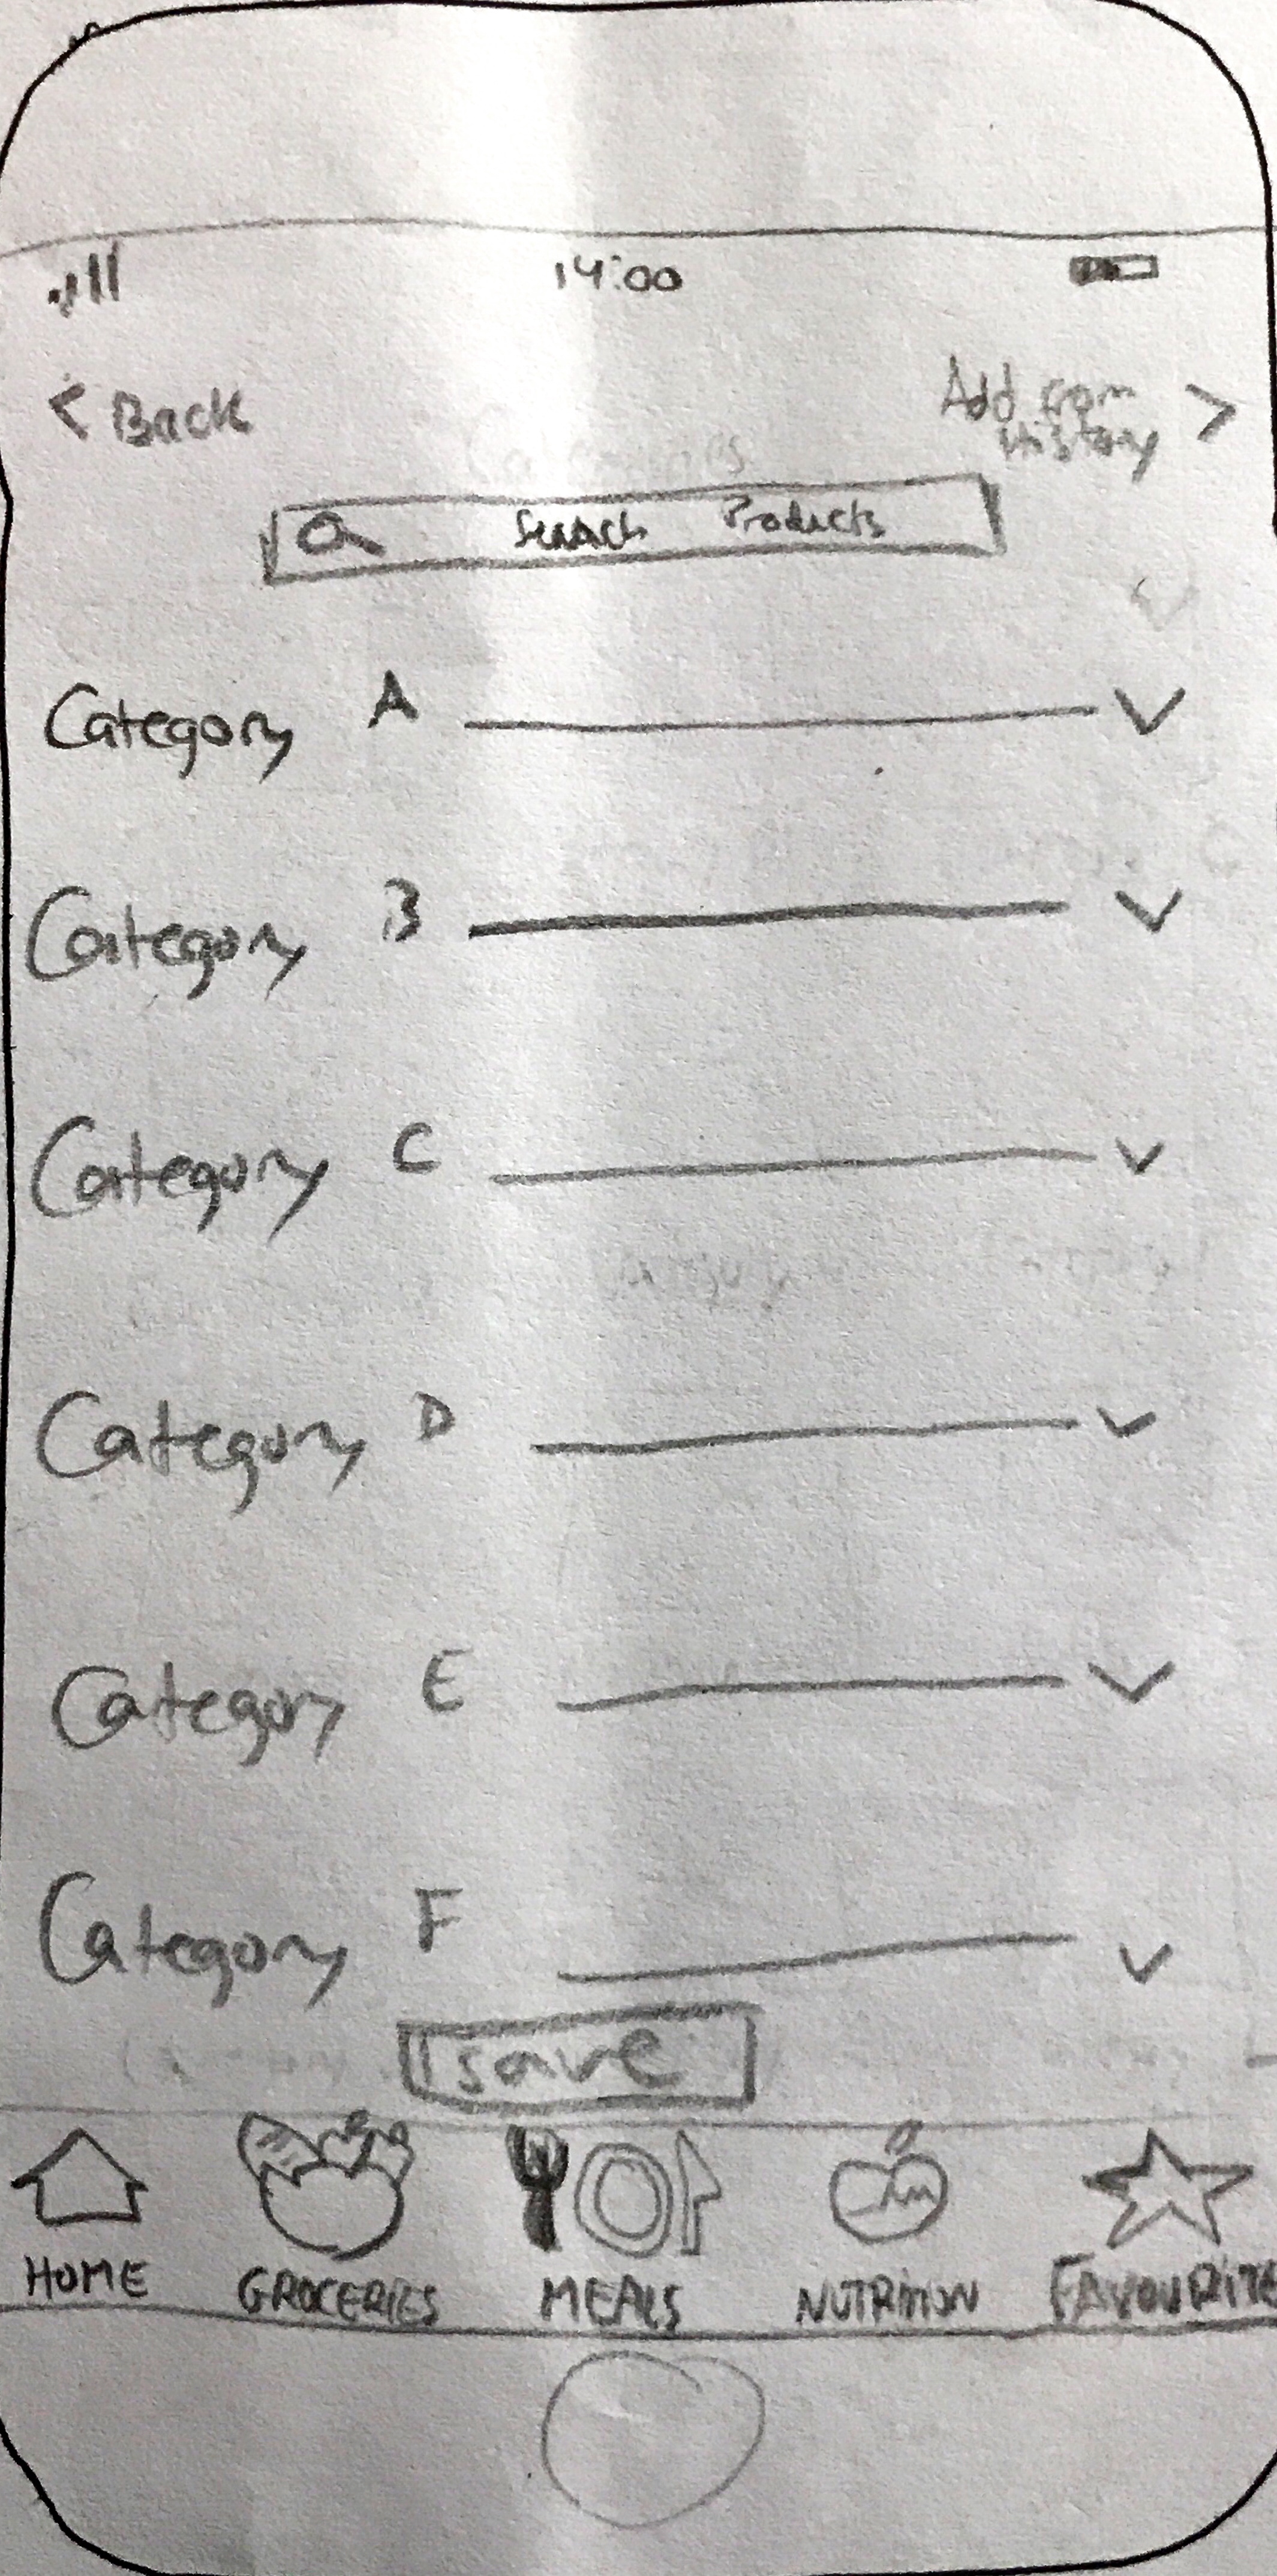 14:00
< Back
Add from
History >
Categories
Search Products
Category A
Category B
Category C
Category D
Category E
Category F
Save
HOME GROCERIES MEALS NUTRITION FAVOURITE